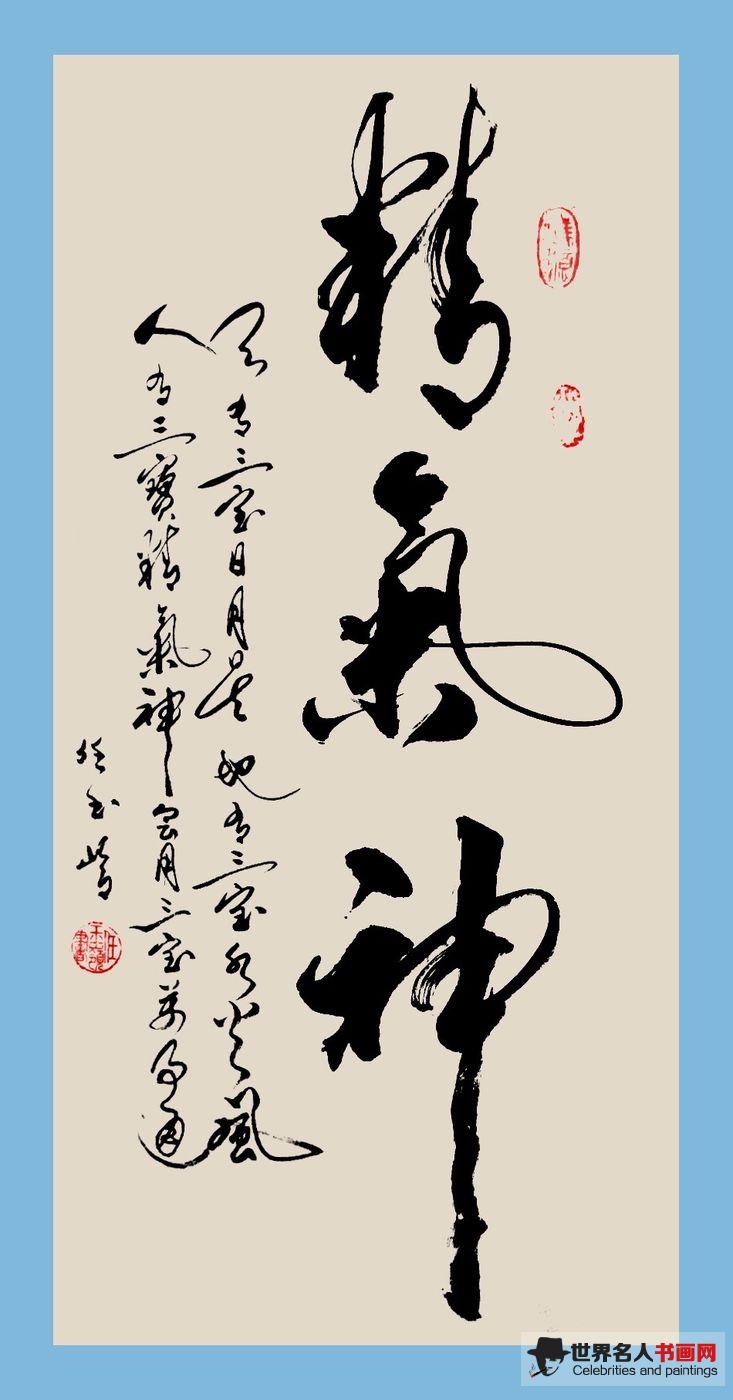 精氣神
天有三宝日月星地有三宝水火風
人有三寶精氣神会用三宝萬事通
任玉嶺
任玉嶺書
世界名人书画网
Celebrities and paintings